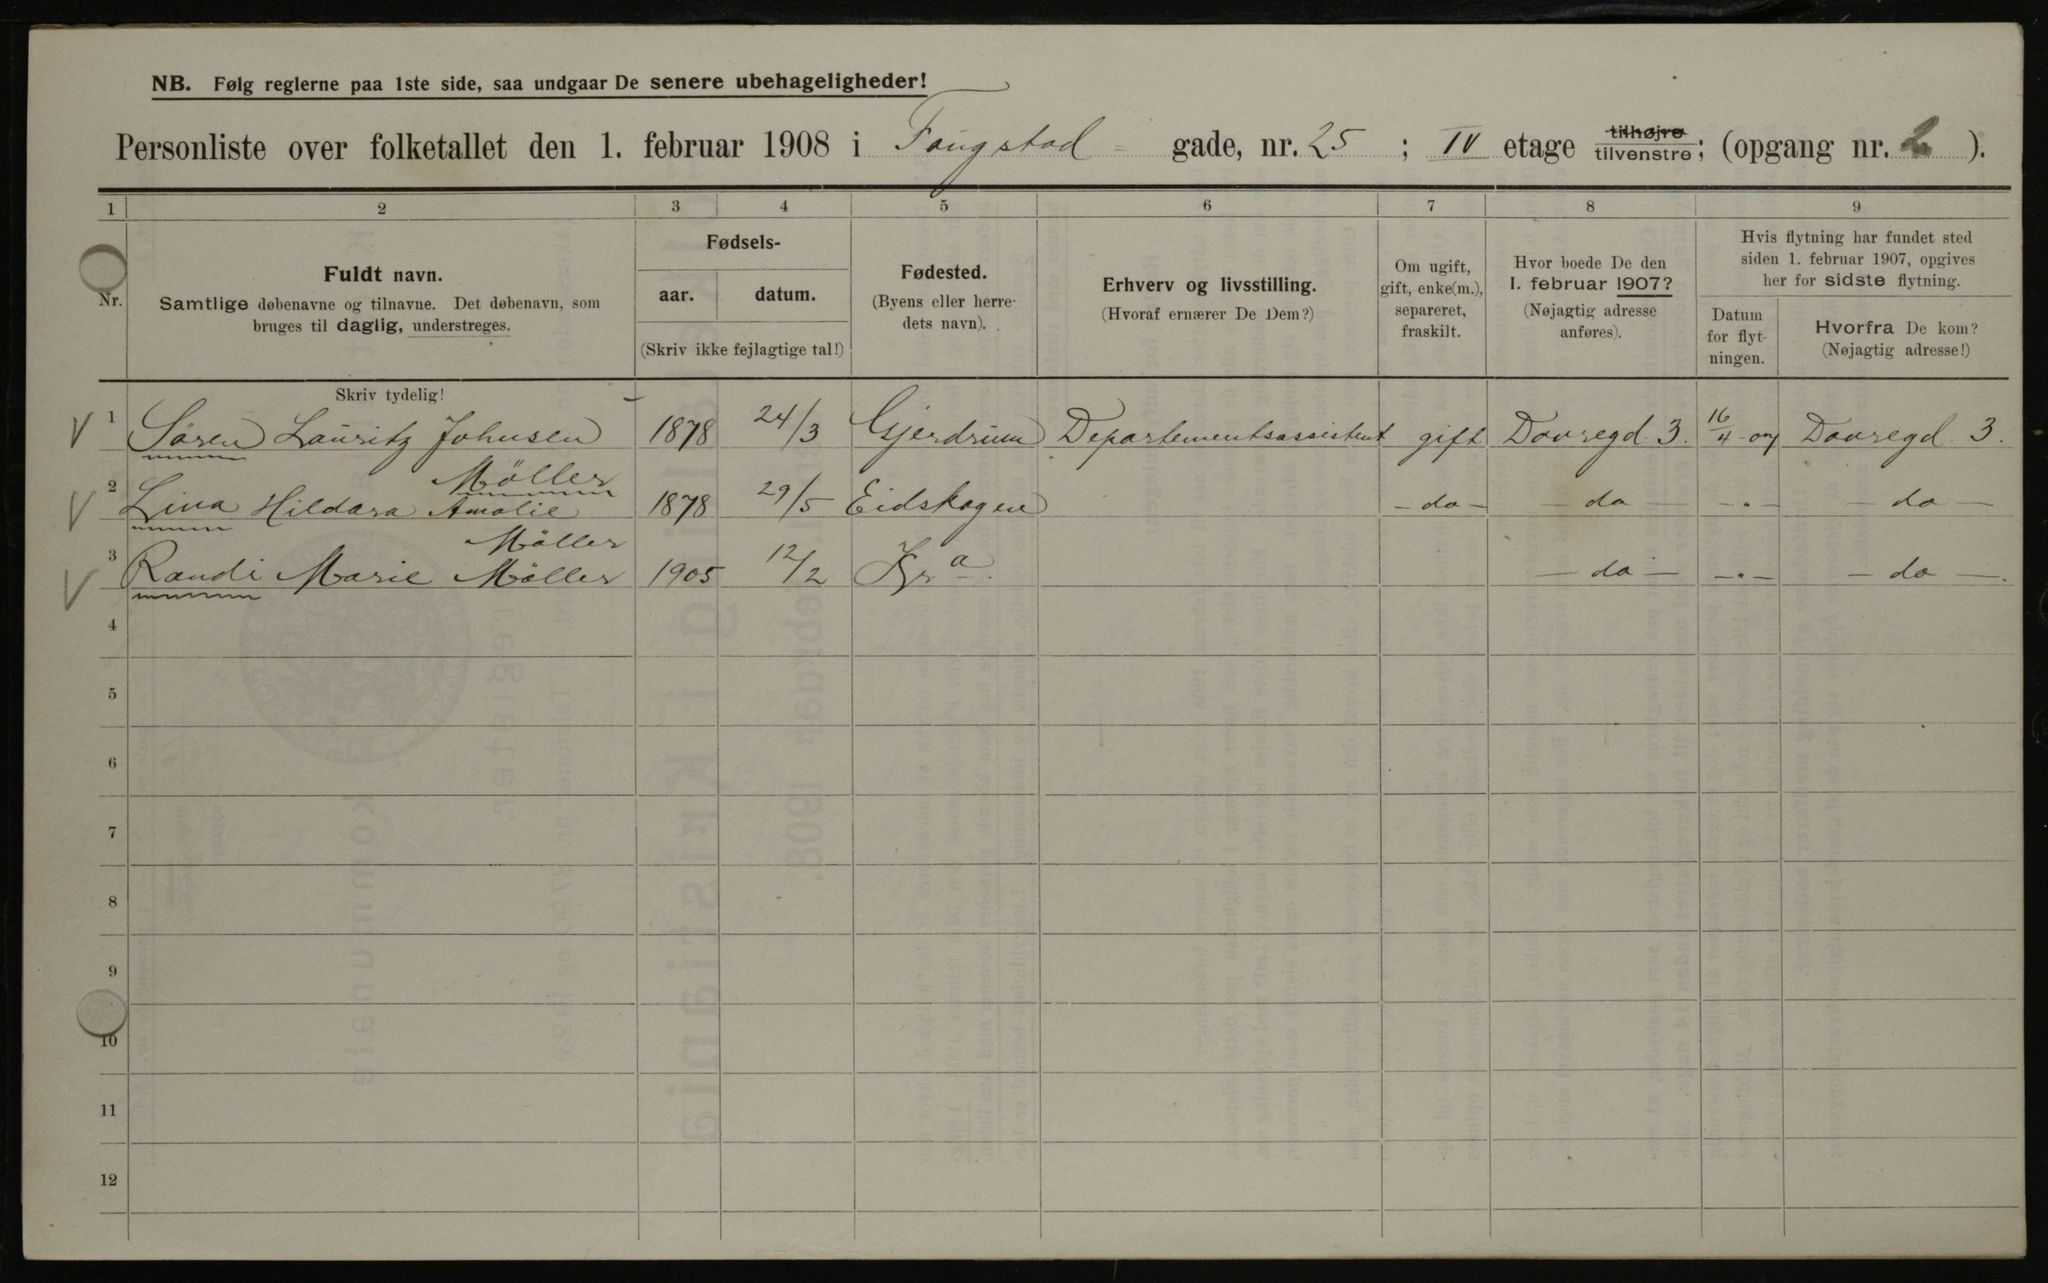 NB. Følg reglerne paa 1ste side, saa undgaar De senere ubehageligheder!
Personliste over folketallet den 1. februar 1908 i Fougstad - gade, nr. 25 ; IV etage tilhøjre tilvenstre; (opgang nr. 2 ).
1 2 3 4 5 6 7 8 9
Nr.
Fuldt navn.
Samtlige døbenavne og tilnavne. Det døbenavn, som
bruges til daglig, understreges.
Fødsels-
aar. datum.
(Skriv ikke fejlagtige tal!)
Fødested.
(Byens eller herre-
dets navn).
Erhverv og livsstilling.
(Hvoraf ernærer De Dem?)
Om ugift,
gift, enke(m.),
separeret,
fraskilt.
Hvor boede De den
1. februar 1907?
(Nøjagtig adresse
anføres).
Hvis flytning har fundet sted
siden 1. februar 1907, opgives
her for sidste flytning.
Datum
for flyt-
ningen.
Hvorfra De kom?
(Nøjagtig adresse!)
Skriv tydelig!
1 Sören Lauritz Johnsen 1878 24/3 Gjerdrum Departementsassistent gift Dovregd. 3. 16/4-07 Dovregd. 3.
Möller
2 Lina Hildara Amalie 1878 29/5 Eidskogen - do - - do - - " - - do -
Möller
3 Randi Marie Möller 1905 12/2 Kra - do - - " - - do -.
4
5
6
7
8
9
10
11
12